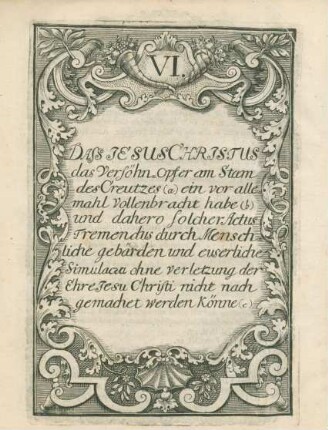 VI.
DASS JESUS CHRISTUS
das Versöhn. Opfer am Stam
des Creutzes (a) ein vor alle
mahl Vollenbracht habe (b)
und dahero solcher Actus
Tremendus durch Mensch
liche gebärden und euserliche
Simulacra ohne verletzung der
Ehre Jesu Christi nicht nach
gemachet werden Könne (c)